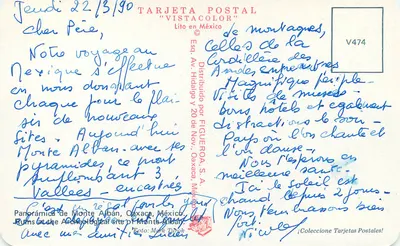 Jeudi 22/3/90
TARJETA POSTAL
"VISTACOLOR"
Lito en México
V474
Cher Père,
Notre voyage au
Mexique s'effectue
en nous donnant
chaque jour le plai-
sir de nouveaux
sites. Aujourd'hui
Monte Alban avec ses
pyramides, ce mont
surplombant 3
Vallées encastrées
de montagnes,
celles de la
Cordillère des
Andes
Magnifique périple
Visite de musées
bons hôtels et également
distractions le soir
Pays où l'on chante et
l'on danse.
Nous t'espérons en
meilleure santé.
Ici le soleil est
chaud depuis 2 jours.
Nous t'embrassons bien
fort.
Nicole
Distribuido por FIGUEROA, S. A.
Esq. Av. Hidalgo y 20 de Nov. Oaxaca,
Panorámicos de Monte Albán, Oaxaca, México.
C'est un
avec
Lucien
¡Coleccione Tarjetas Postales!